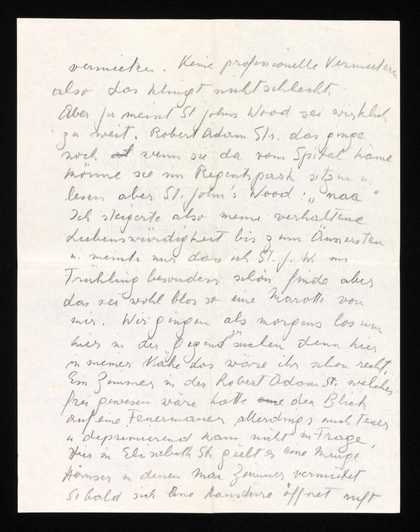 vermieten. Keine professionelle Vermieterin
also das klingt nicht schlecht.
Aber sie meint St Johns Wood sei wirklich
zu weit. Robert Adam Str. das ginge
noch, wenn sie da vom Spital käme
könne sie im Regentspark sitzen u.
lesen aber St. John's Wood: „naa"
Ich steigerte also meine verhaltene
Liebenswürdigkeit bis zum Äussersten
u. meinte nur dass ich St. J. W. im
Frühling besonders schön finde aber
das sei wohl blos so eine Marotte von
mir. Wir gingen also morgens los um
hier in der Gegend suchen denn hier
in meiner Nähe das wäre ihr schon recht.
Ein Zimmer in der Robert Adam Str. welches
frei gewesen wäre hatte den Blick
auf eine Feuermauer, allerdings auch teuer
u. deprimierend kam nicht in Frage,
Hier in Elisabeth St. giebt es eine Menge
Häuser in denen man Zimmer vermietet
Sobald sich eine Haustüre öffnet ruft